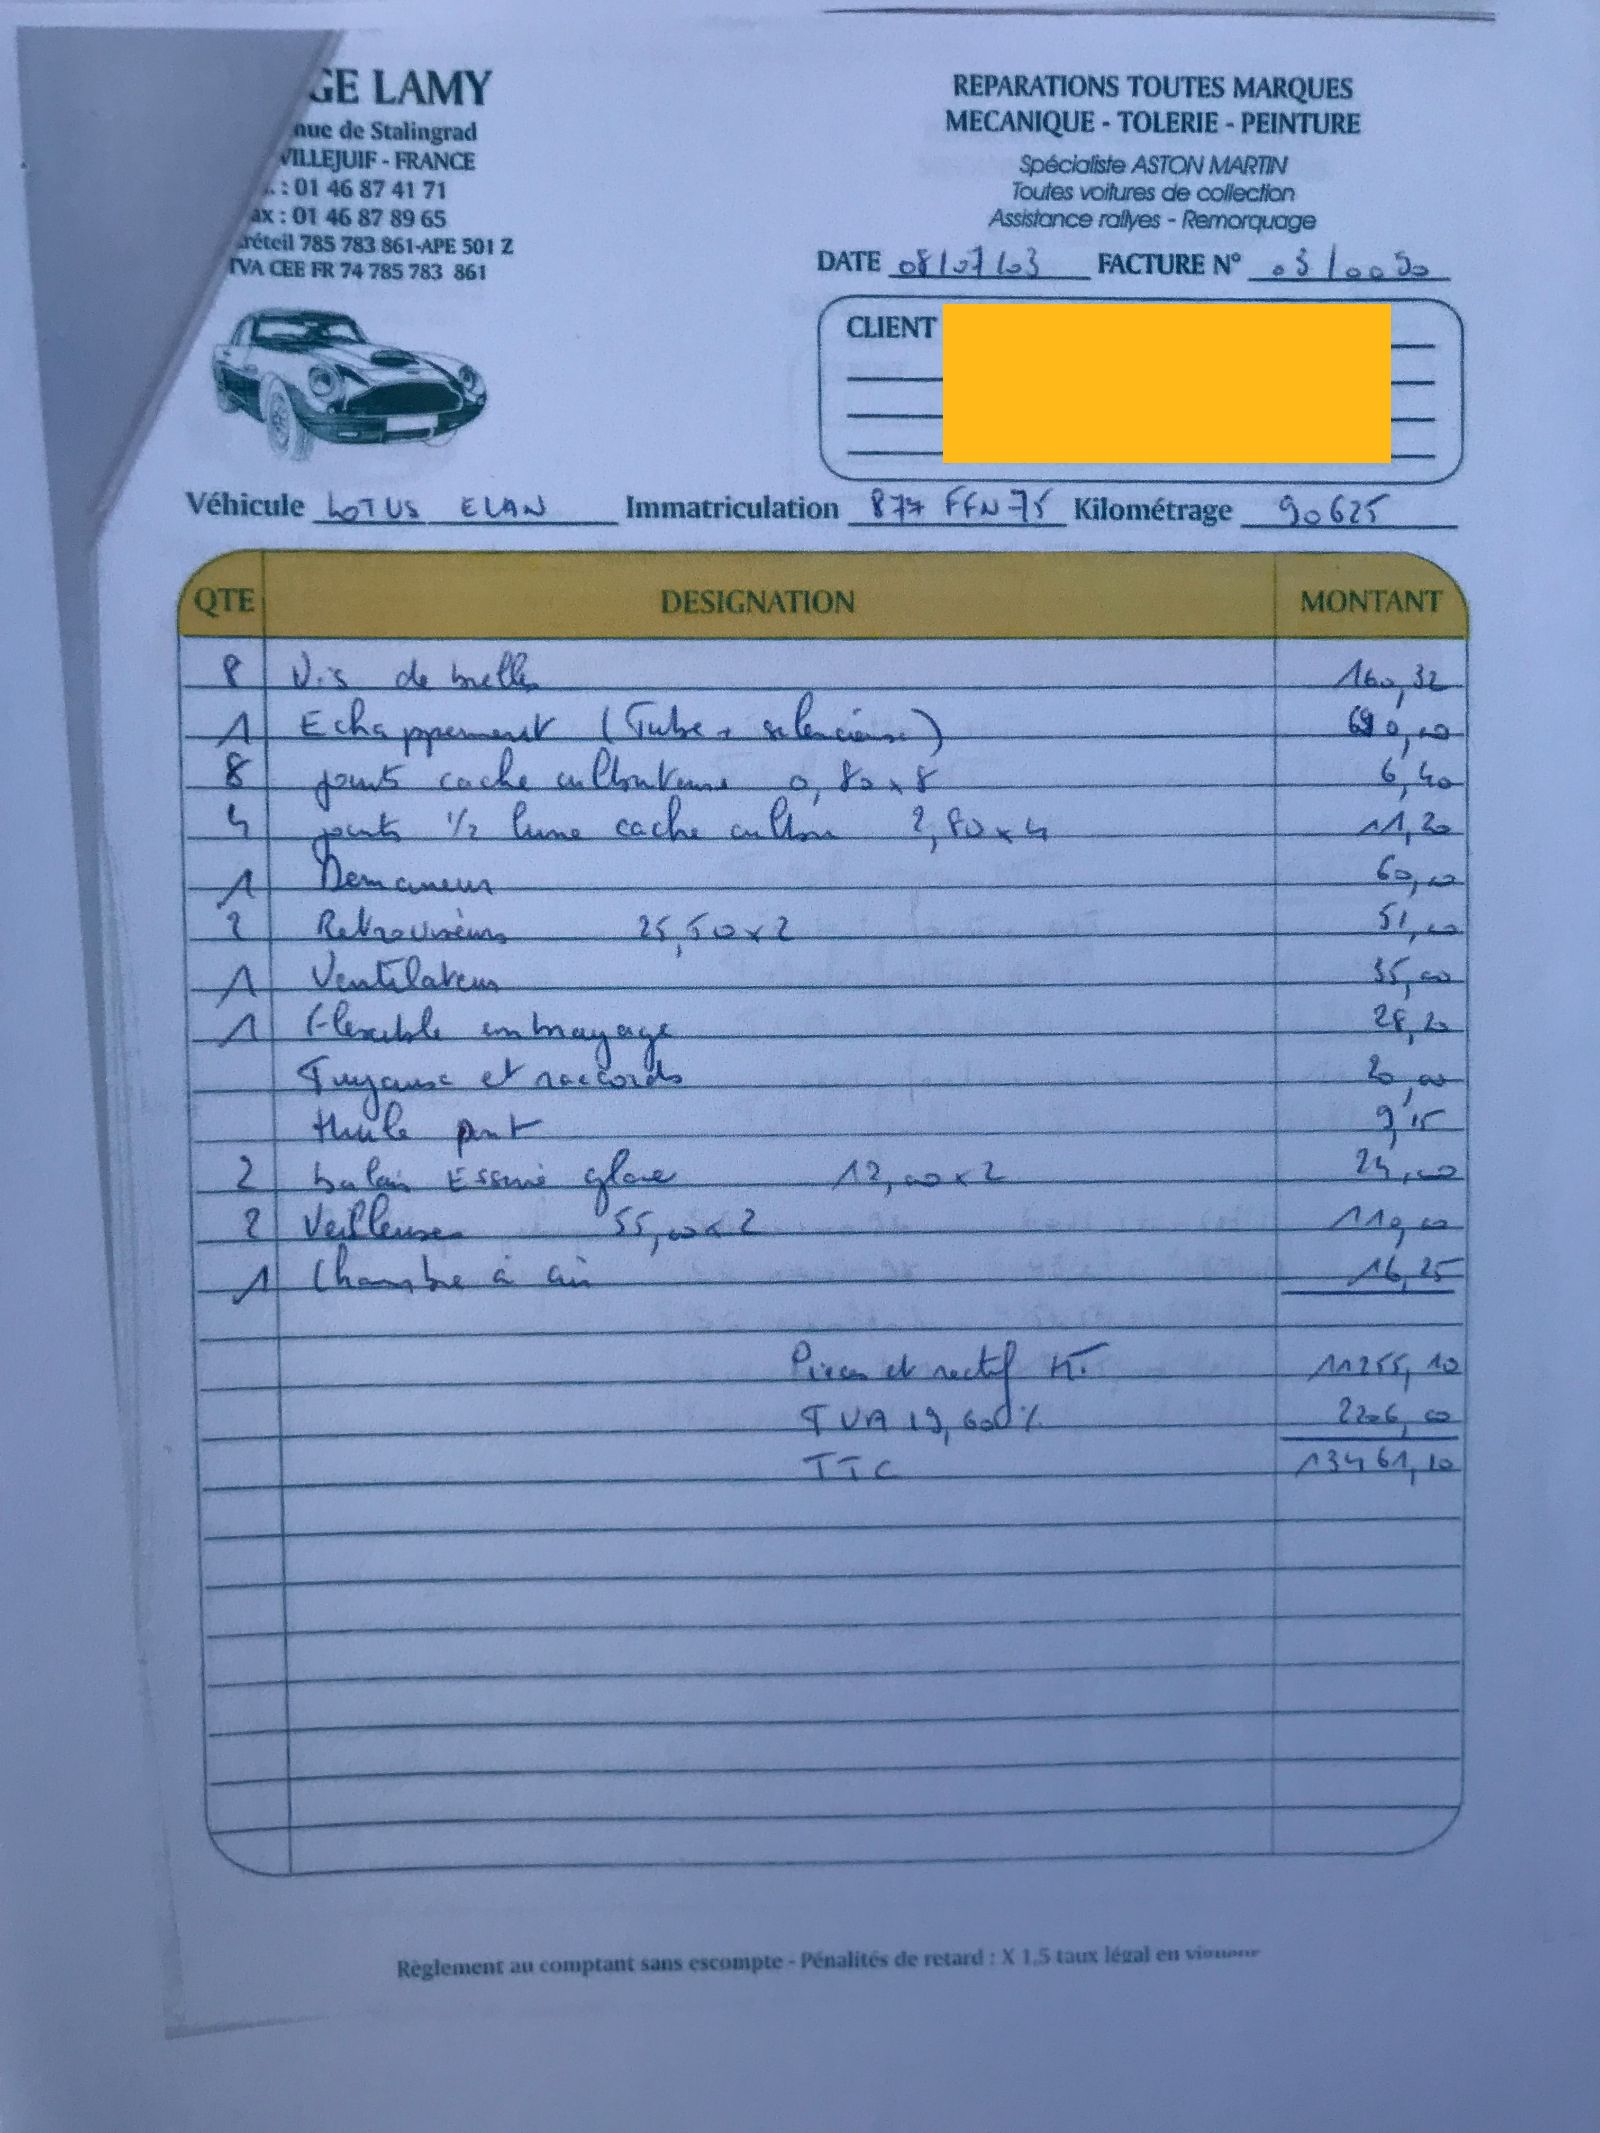 GE LAMY
nue de Stalingrad
VILLEJUIF - FRANCE
. : 01 46 87 41 71
ax : 01 46 87 89 65
réteil 785 783 861-APE 501 Z
TVA CEE FR 74 785 783 861
REPARATIONS TOUTES MARQUES
MECANIQUE - TOLERIE - PEINTURE
Spécialiste ASTON MARTIN
Toutes voitures de collection
Assistance rallyes - Remorquage
DATE 08/07/03 FACTURE N°
CLIENT
Véhicule LOTUS ELAN Immatriculation 877 FFN 75 Kilométrage 90625
QTE DESIGNATION MONTANT
8 Vis de bielles 160,32
1 Echappement (Tube + silencieux) 690,00
8 joints cache culbuteurs 0,80 x 8 6,40
4 joints 1/2 lune cache culbu 2,80 x 4 11,20
1 Demarreur 60,00
2 Retroviseurs 25,50 x 2 51,00
1 Ventilateur 35,00
1 Flexible embrayage 28,20
Tuyaux et raccords 20,00
Huile pont 9,15
2 balais Essuie glace 12,00 x 2 24,00
2 Veilleuses 55,00 x 2 110,00
1 Chambre à air 16,25
Pieces et rectif HT 11255,10
TVA 19,600% 2206,00
TTC 13461,10
Règlement au comptant sans escompte - Pénalités de retard : X 1,5 taux légal en vigueur